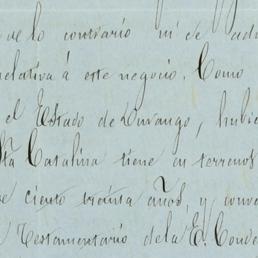 de lo contrario ni de
relativa á este negocio. Como
el Estado de Durango, hubie
Sta Catalina tiene en terrenos
ciento treinta años, y conve
Testamentario dela E. Conde